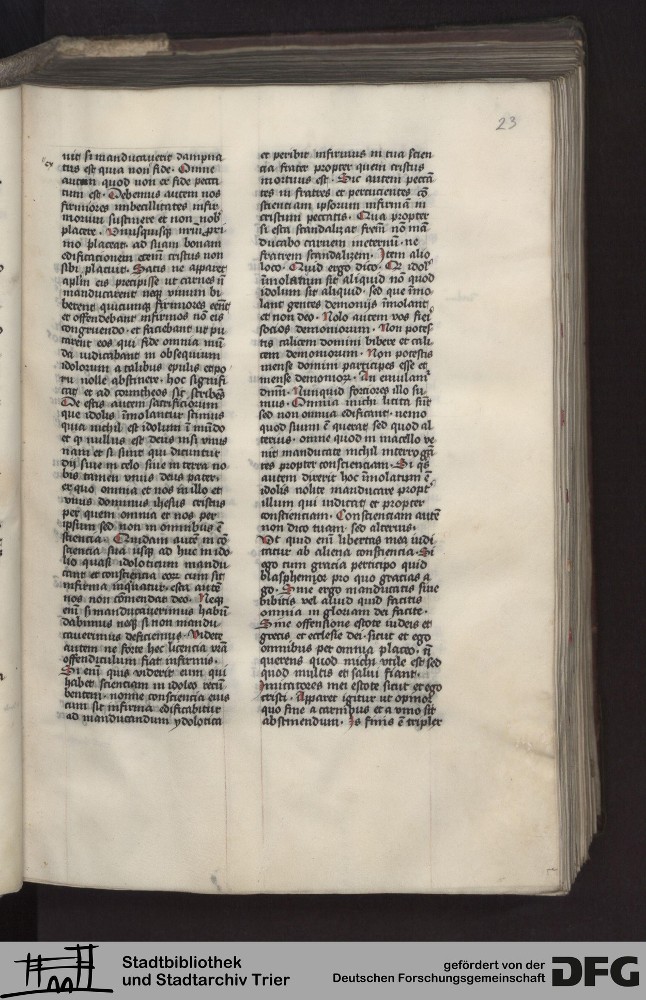 23
nit si manducaverit dampna
tus est quia non fide. Omne
autem quod non ex fide pecca
tum est. Debemus autem nos
firmiores imbecillitates infir
morum sustinere et non nob
placere. Unusquisque nrm pri
mo placeat. ad suam bonam
edificationem etenim cristus non
sibi placuit. Satis ne apparet
aplm eis precipisse ut carnes n
manducarent neqz vinum bi
berent quicumqz firmiores eent
et offendebant infirmos no eis
congruendo. et faciebant ut pu
tarent eos qui fide omnia mu
da iudicabant in obsequium
idolorum a talibus epulis et po
tu nolle abstinere. hoc signifi
cat et ad corintheos sic scribes
De escis autem sacrificiorum
que idolis imolantur scimus
quia nichil est idolum i mudo
et qz nullus est deus nisi vnus
nam et si sunt qui dicuntur
dij siue in celo siue in terra no
bis tamen vnus deus pater.
ex quo omnia et nos in illo et
vnus dominus ihesus cristus
per quem omnia et nos per
ipsum sed non in omnibus e
sciencia. Quidam aute in co
sciencia sua usqz ad huc in ido
lio quasi idoloticum mandu
cant et consciencia eorz cum sit
infirma inquatur. esca aute
nos non comendat deo. Neqz
eni si manducauerimus habu
dabimus neqz si non mandu
cauerimus deficiemus. Videte
autem ne forte hec licencia vra
offendiculum fiat infirmis.
Si eni quis viderit eum qui
habet scienciam in idoleo recu
bentem. nonne consciencia eius
cum sit infirma edificabitur
ad manducandum ydolotica
et peribit infirmus in tua scien
cia frater propter quem cristus
mortuus est. Sic autem pecca
tes in fratres et percucientes co
scienciam ipsorum infirmam in
cristum peccatis. Qua propter
si esca scandalizat frem no ma
ducabo carnem ineternu. ne
fratrem scandalizem. Item alio
loco. Quid ergo dico. Qz idol
imolatum sit aliquid no quod
idolum sit aliquid. sed que imo
lant gentes demonijs imolant
et non deo. Nolo autem vos fiei
socios demoniorum. Non potes
tis calicem domini bibere et cali
cem demoniorum. Non potestis
mense domini participes esse et
mense demoniorz. An emulam
dnm. Nunquid forciores illo su
mus. Omnia michi licita sut
sed non omnia edificant. nemo
quod suum e querat sed quod al
terius. omne quod in macello ve
nit manducate nichil interroga
tes propter conscienciam. Si qs
autem dixerit hoc imolatum e
idolis nolite manducare propt
illum qui indicat et propter
conscienciam. Conscienciam aute
non dico tuam sed alterius.
Ut quid eni libertas mea iudi
catur ab aliena consciencia. Si
ego cum gracia percipo quid
blasphemor pro quo gracias a
go. Siue ergo manducatis siue
bibitis vel aliud quid facitis
omnia in gloriam dei facite.
Sine offensione estote iudeis et
grecis et ecclesie dei. sicut et ego
omnibus per omnia placeo. n
querens quod michi vtile est sed
quod multis et salui fiant.
Imitatores mei estote sicut et ego
cristi. Apparet igitur ut opinor
quo fine a carnibus et a vino sit
abstinendum. Is finis e triplex
Stadtbibliothek
und Stadtarchiv Trier
gefördert von der
Deutschen Forschungsgemeinschaft
DFG